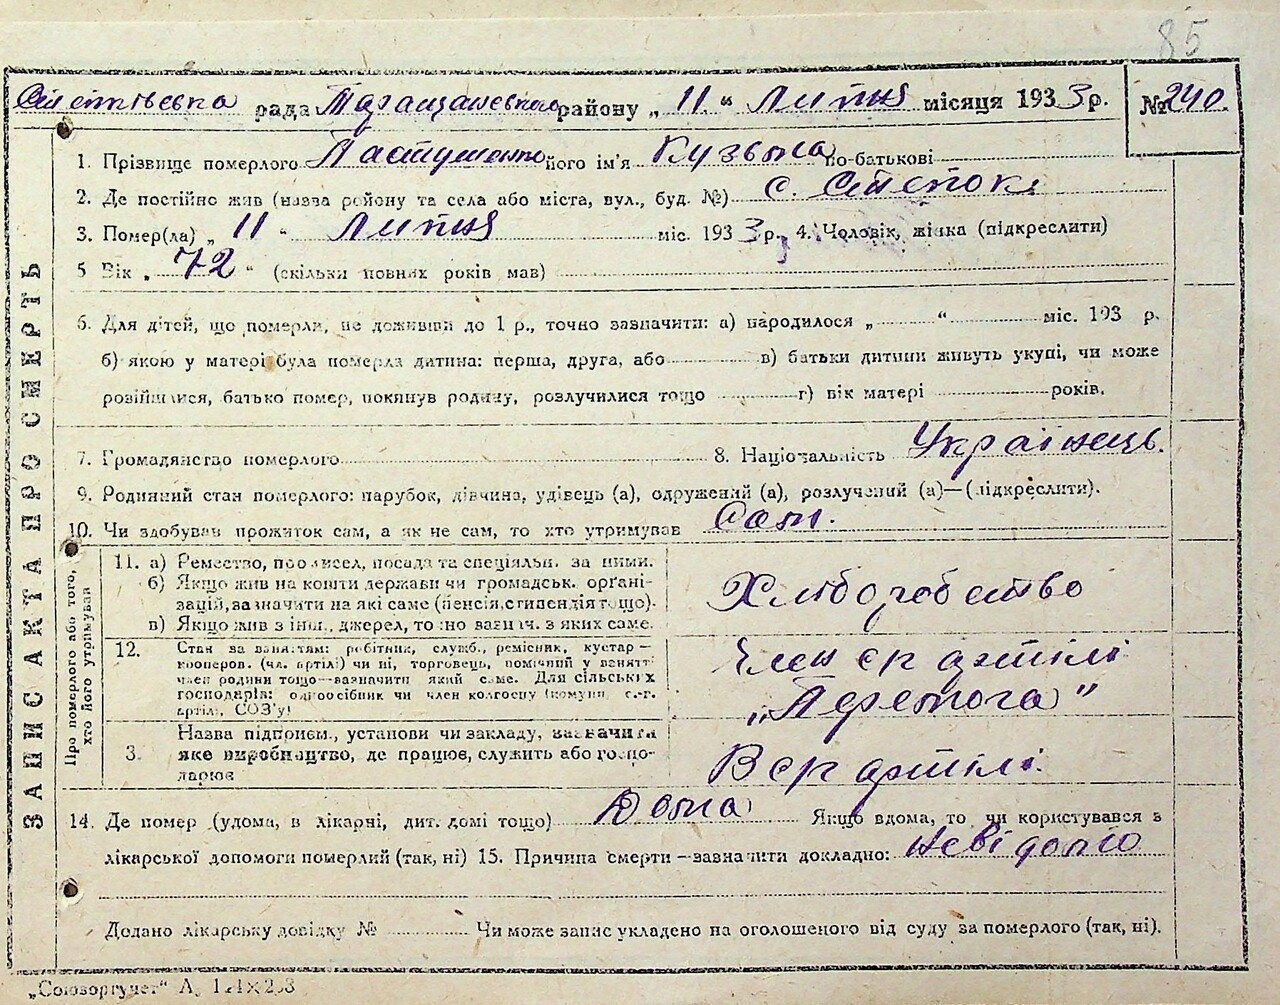 85
рада Таращанського району „ 11 “ Липня місяця 1933 р. № 240.
1. Прізвище померлого його ім'я Кузьма по-батькові
2. Де постійно жив (назва району та села або міста, вул., буд. №) с. Степок
3. Помер(ла) „ 11 “ Липня міс. 1933 р., 4. Чоловік, жінка (підкреслити)
5 Вік „ 72 “ (скільки повних років мав)
6. Для дітей, що померли, не доживши до 1 р., точно зазначити: а) народилося „ “ міс. 193 р.
б) якою у матері була померла дитина: перша, друга, або в) батьки дитини живуть укупі, чи може
розійшлися, батько помер, покинув родину, розлучилися тощо г) вік матері років.
7. Громадянство померлого 8. Національність Українець.
9. Родинний стан померлого: парубок, дівчина, удівець (а), одружений (а), розлучений (а)—(підкреслити).
10. Чи здобував прожиток сам, а як не сам, то хто утримував Сам.
ЗАПИС АКТА ПРО СМЕРТЬ
Про померлого або того,
хто його утримував
11. а) Ремество, промисел, посада та спеціяльн. за ними.
б) Якщо жив на кошти держави чи громадськ. орґані-
зацій, зазначити на які саме (пенсія, стипендія тощо).
в) Якщо жив з інш. джерел, точно зазнач. з яких саме.
Хліборобство
12. Стан за занят̄ям: робітник, служб., ремісник, кустар —
кооперов. (чл. артілі) чи ні, торговець, помічний у занятті
член родини тощо—зазначити який саме. Для сільських
господарів: одноосібник чи член колгоспу (комуни, с.-г.
артілі, СОЗ'у)
Член ск артілі
„Перемога”
3. Назва підприєм., установи чи закладу, зазначити
яке виробництво, де працює, служить або госпо-
дарює
В ск артілі.
14. Де помер (удома, в лікарні, дит. домі тощо) Дома Якщо вдома, то чи користувався з
лікарської допомоги померлий (так, ні) 15. Причина смерти — зазначити докладно: невідомо
Додано лікарську довідку № Чи може запис укладено на оголошеного від суду за померлого (так, ні).
„Союзоргучет“ А